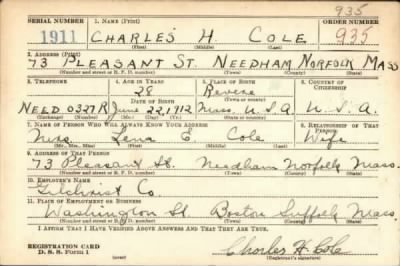 935
SERIAL NUMBER 1. NAME (Print) ORDER NUMBER
1911 CHARLES H. COLE 935
(First) (Middle) (Last)
2. ADDRESS (Print)
73 PLEASANT ST. NEEDHAM NORFOLK MASS
(Number and street or R. F. D. number) (Town) (County) (State)
3. TELEPHONE 4. AGE IN YEARS 5. PLACE OF BIRTH 6. COUNTRY OF CITIZENSHIP
28 Revere
NEED 0327R DATE OF BIRTH
June 22, 1912 Mass. U.S.A U.S.A.
(Exchange) (Number) (Mo.) (Day) (Yr.) (State or country)
7. NAME OF PERSON WHO WILL ALWAYS KNOW YOUR ADDRESS 8. RELATIONSHIP OF THAT PERSON
Mrs. Lena E. Cole Wife
(Mr., Mrs., Miss) (First) (Middle) (Last)
9. ADDRESS OF THAT PERSON
73 Pleasant St. Needham Norfolk Mass.
(Number and street or R. F. D. number) (Town) (County) (State)
10. EMPLOYER'S NAME
Gilchrist Co
11. PLACE OF EMPLOYMENT OR BUSINESS
Washington St. Boston Suffolk Mass.
(Number and street or R. F. D. number) (Town) (County) (State)
I AFFIRM THAT I HAVE VERIFIED ABOVE ANSWERS AND THAT THEY ARE TRUE.
REGISTRATION CARD
D. S. S. Form 1 Charles H. Cole
(Registrant's signature)